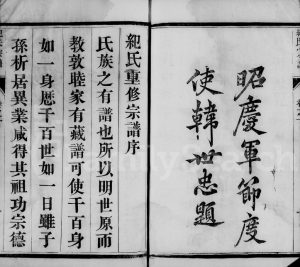 昭慶軍節度
使韓世忠題
紀氏重修宗譜序
氏族之有譜也所以明世原而
教敦睦家有藏譜可使千百身
如一身歷千百世如一日雖子
孫析居異業咸得其祖功宗德